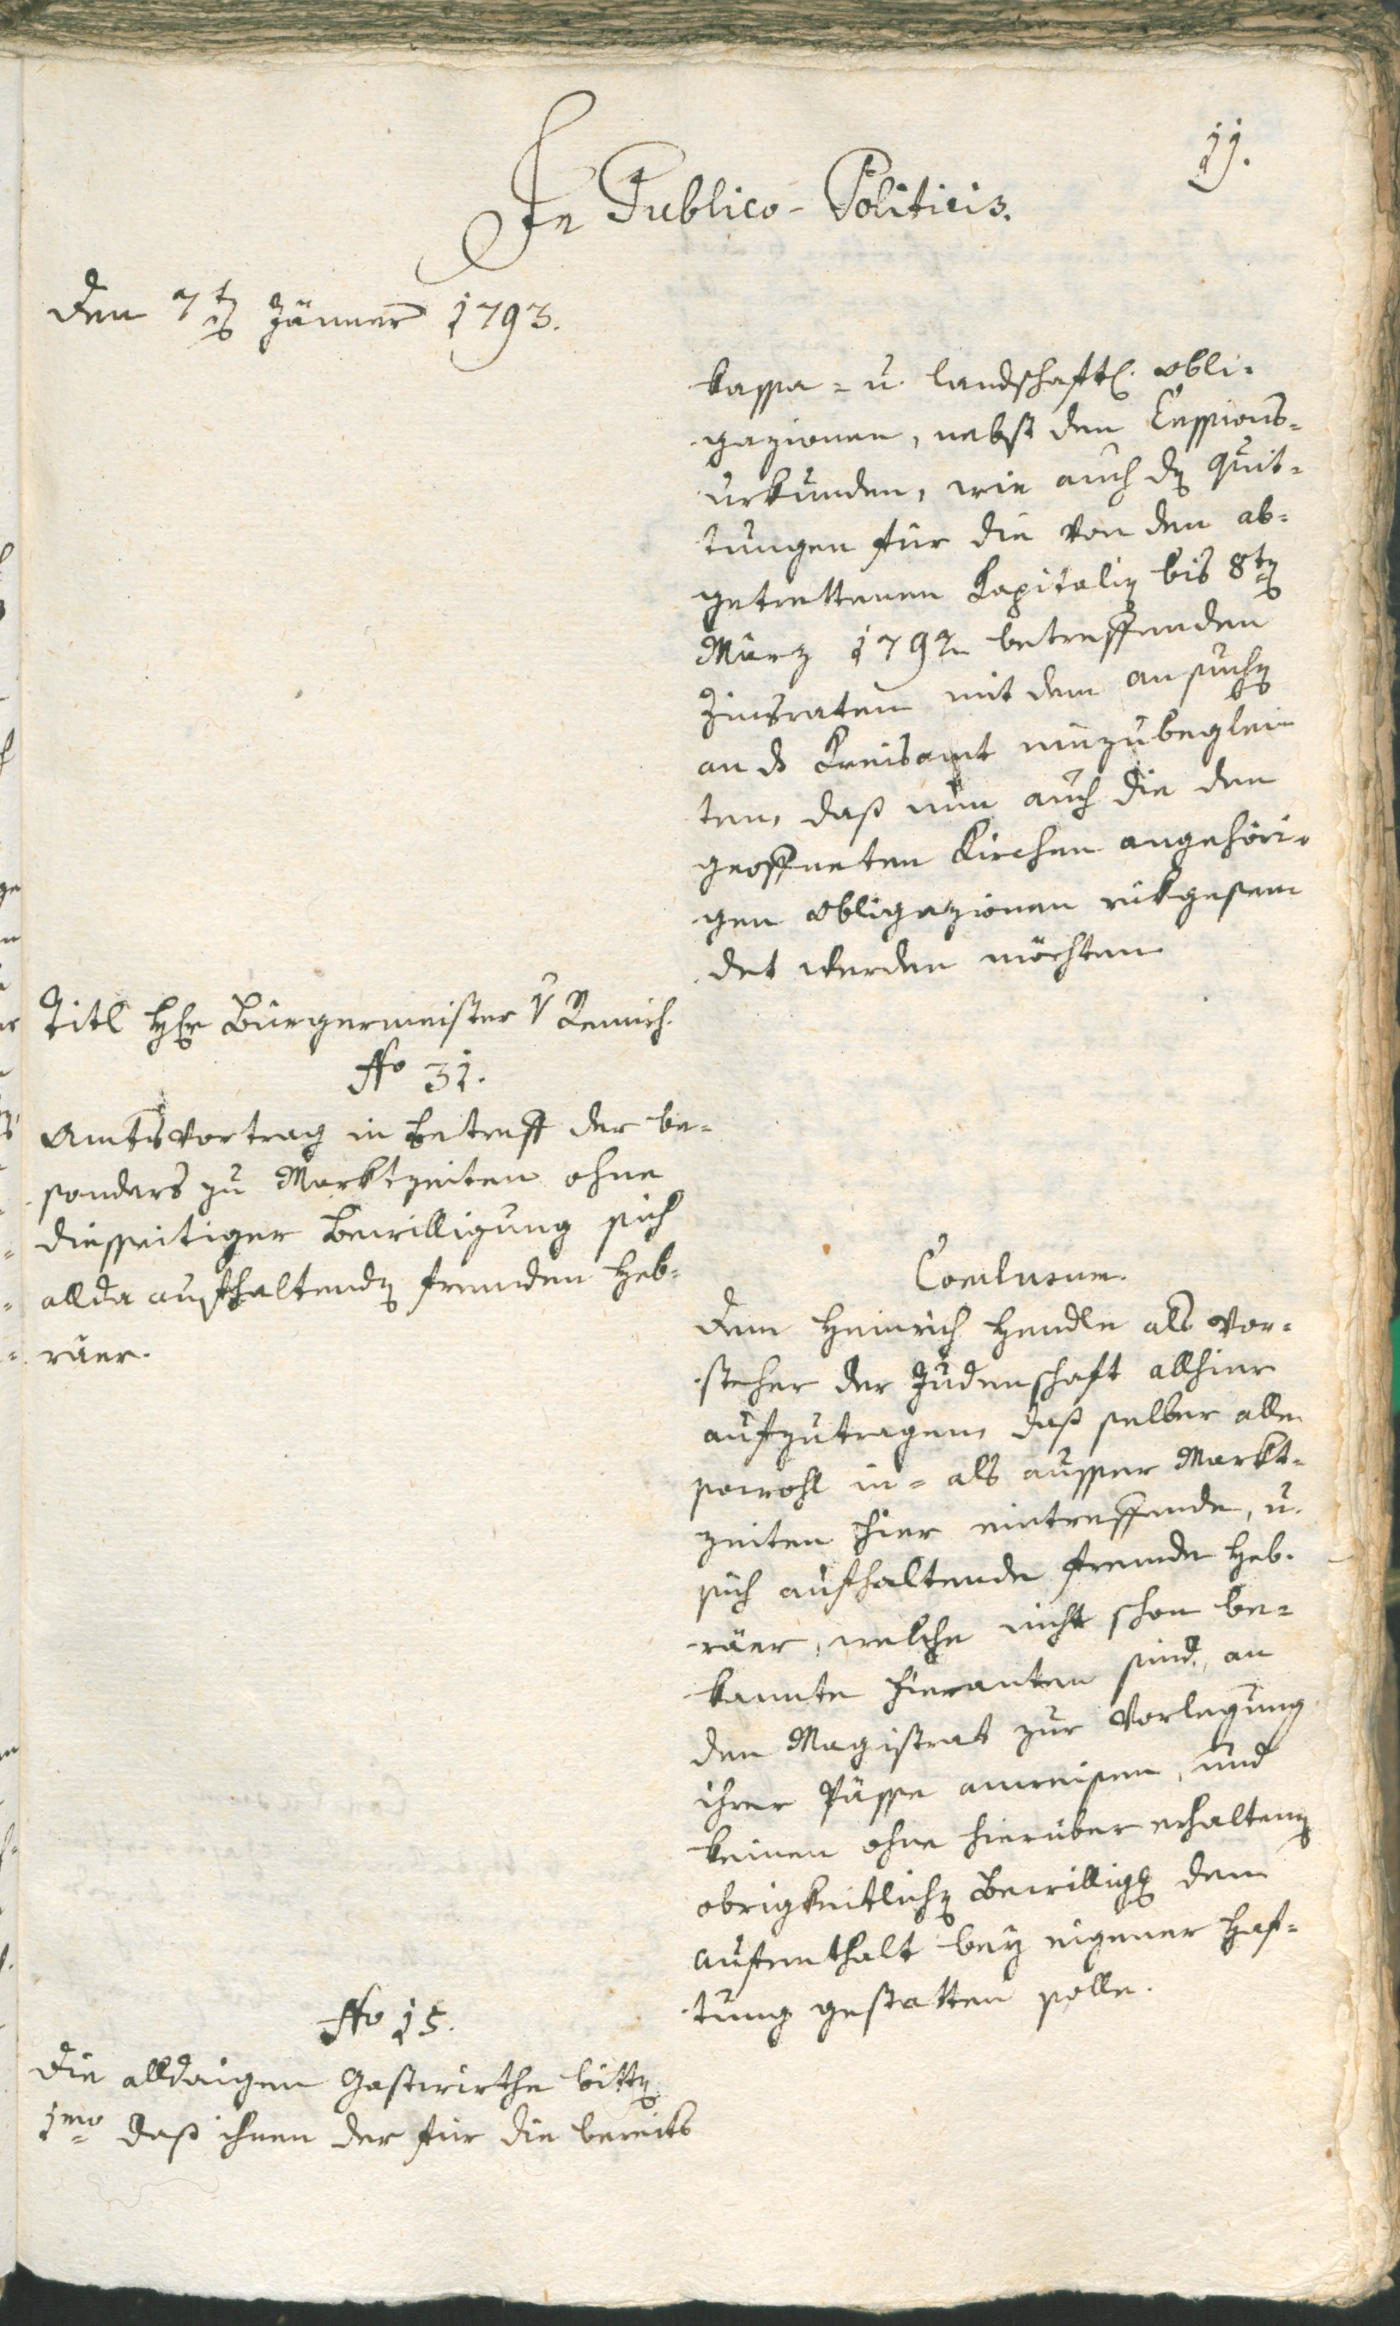 11.
In Publico-Politicis.
Den 7t Jänner 1793.
kassa= u. landschaftl. obli=
gazionen, nebst den Cessions=
urkunden, wie auch dn Quit=
tungen für die von den ab=
getrettenen Kapitalien bis 8ten
März 1792 betreffenden
Zinsraten mit dem ansuchen
an ds Kreisamt einzubeglei=
ten, daß nun auch die den
geöffneten Kirchen angehöri=
gen obligazionen rükgesen
det werden möchten
Titl Hr Bürgermeister v Remich.
No 31.
Amtsvortrag in betreff der be=
sonders zu Marktzeiten ohne
diesseitiger Bewilligung sich
allda aufhaltenden fremden Heb=
räer.
Conclusum.
Dem Heinrich Hendle als Vor=
steher der Judenschaft allhier
aufzutragen, daß selber alle
sowohl in= als ausser Markt=
zeiten hier eintreffende, u.
sich aufhaltende fremde Heb=
räer, welche nicht schon be=
kannte Fieranten sind, an
den Magistrat zur Vorlegung
ihrer Pässe anweisen, und
keinen ohne hierüber erhalten
obrigkeitlichen Bewillig den
Aufenthalt bey eigener Haf=
tung gestatten solle.
No 15.
Die alldaigen Gastwirthe bitten
1mo daß ihnen der für die bereits